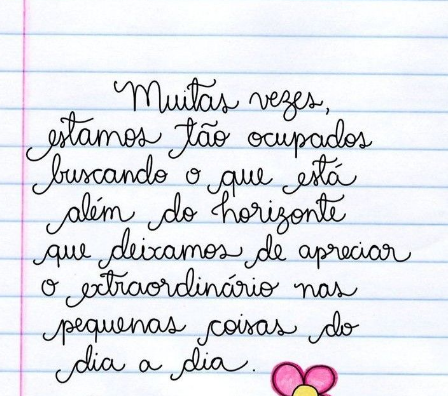 Muitas vezes,
estamos tão ocupados
buscando o que está
além do horizonte
que deixamos de apreciar
o extraordinário nas
pequenas coisas do
dia a dia.